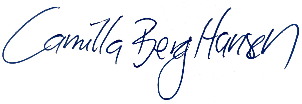 Camilla Berg Hansen